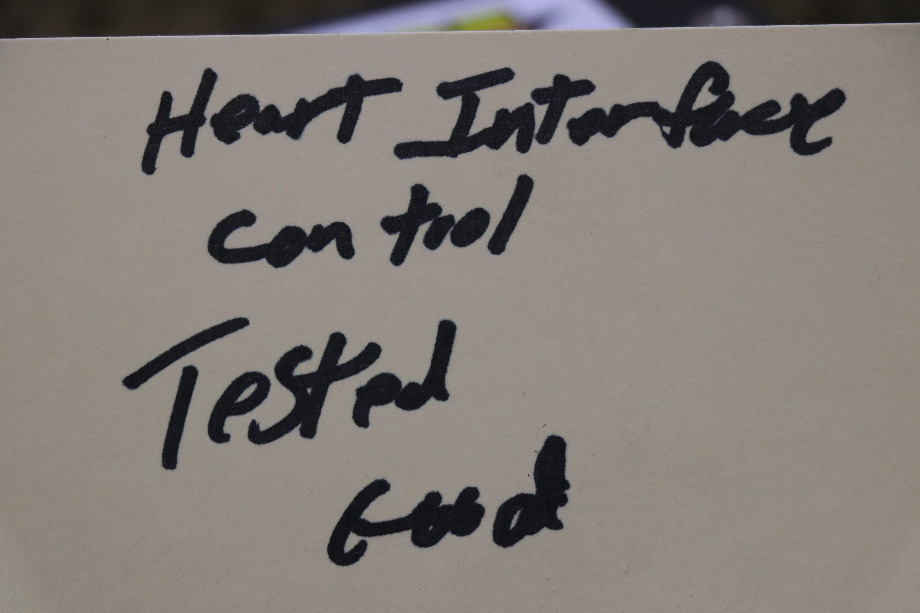 Heart Interface
control
Tested
Good